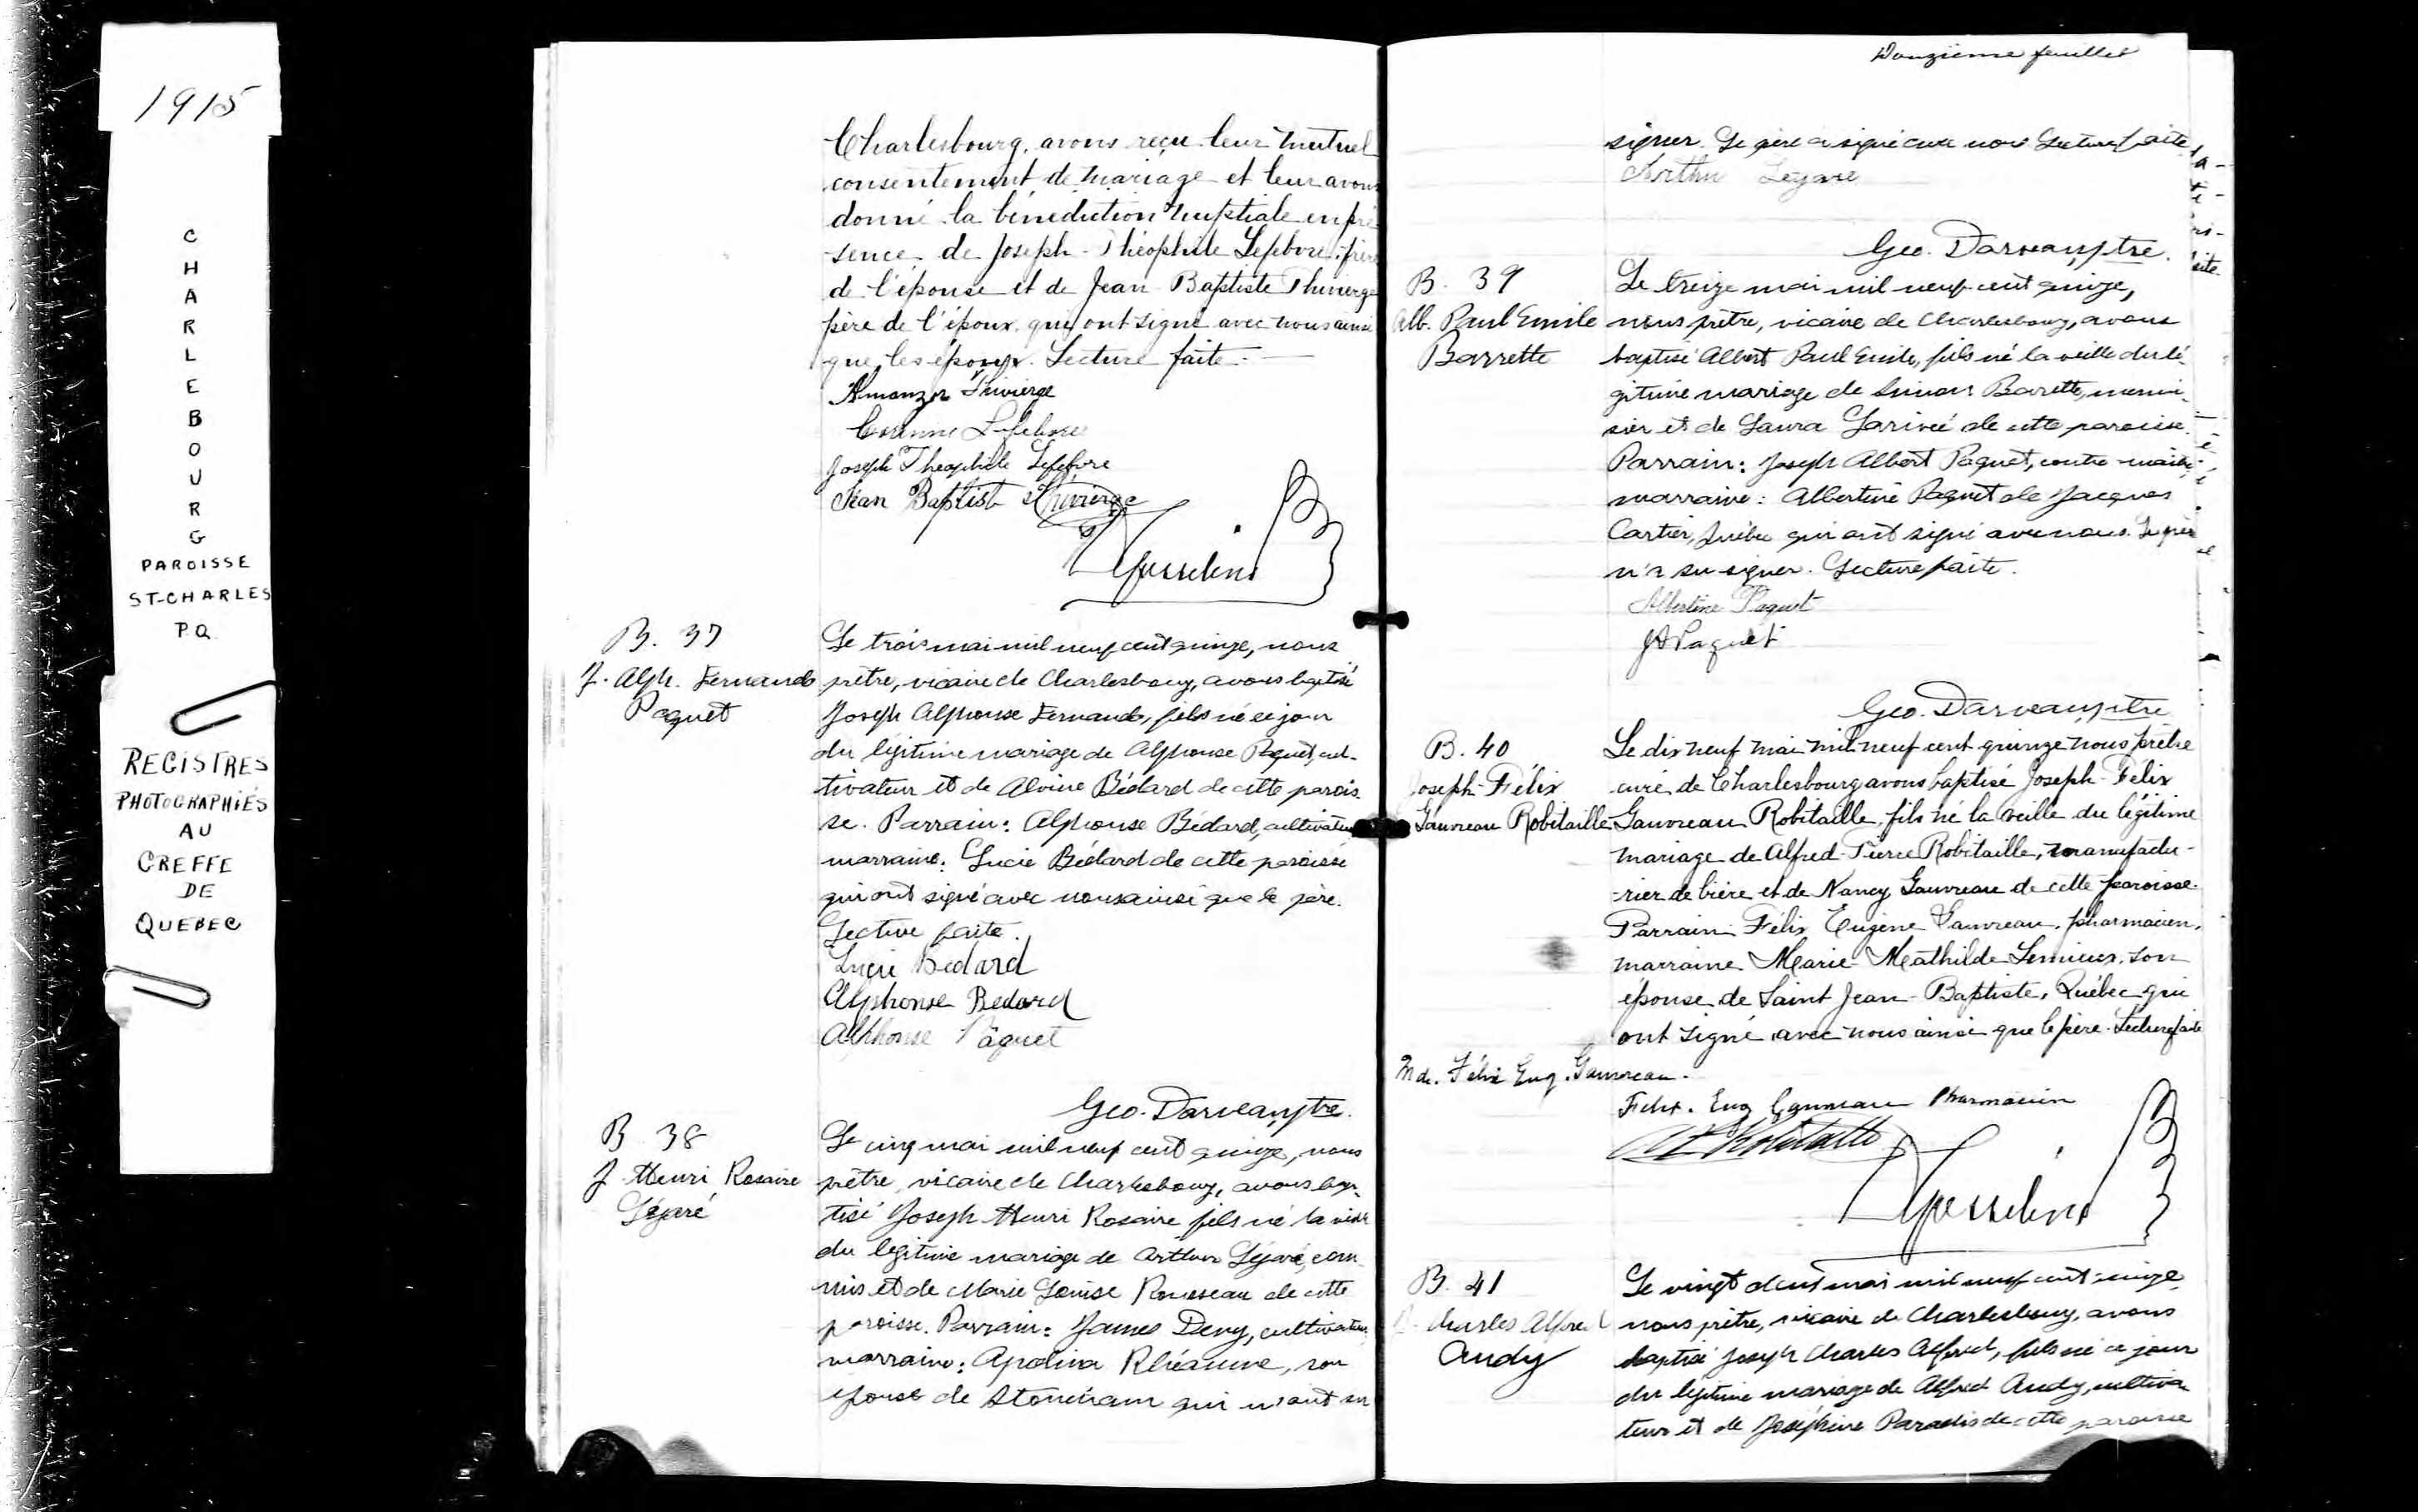 1915
C
H
A
R
L
E
B
O
U
R
G
PAROISSE
ST-CHARLES
P.Q.
REGISTRES
PHOTOGRAPHIÉS
AU
GREFFE
DE
QUEBEC
Charlesbourg, avons reçu leur mutuel
consentement de mariage et leur avons
donné la bénédiction nuptiale en pré
sence de Joseph-Théophile Lefebvre, père
de l'épouse et de Jean Baptiste Thivierge
père de l'époux, qui ont signé avec nous ainsi
que les époux. Lecture faite.
Almanzor Thivierge
Corinne Lefebvre
Joseph Theophile Lefebvre
Jean Baptist Thivierge
Gosselin
B. 37
J. Alph. Fernando
Paquet
Le trois mai mil neuf cent quinze, nous
prêtre, vicaire de Charlesbourg, avons baptisé
Joseph Alphonse Fernando, fils né ce jour
du légitime mariage de Alphonse Paquet, cul-
tivateur et de Alvine Bédard de cette parois
se. Parrain: Alphonse Bédard, cultivateur
marraine: Lucie Bédard de cette paroisse
qui ont signé avec nous ainsi que le père.
Lecture faite.
Lucie Bedard
Alphonse Bedard
Alphonse Paquet
Geo. Darveau, ptre.
B 38
J. Henri Rosaire
Légaré
Le cinq mai mil neuf cent quinze, nous
prêtre, vicaire de Charlesbourg, avons bap-
tisé Joseph Henri Rosaire fils né la veille
du légitime mariage de Arthur Légaré, com
mis et de Marie Louise Rousseau de cette
paroisse. Parrain: James Deny, cultivateur
marraine: Apolina Rhéaume, son
épouse de Stoneham qui n'ont su
Douzième feuillet
signer. Le père a signé avec nous Lecture faite
Arthur Legaré
Geo. Darveau, ptre.
B. 39
Alb. Paul Emile
Barrette
Le treize mai mil neuf cent quinze,
nous prêtre, vicaire de Charlesbourg, avons
baptisé Albert Paul Emile, fils né la veille du lé-
gitime mariage de Simon Barette, menui-
sier et de Laura Larivée de cette paroisse.
Parrain: Joseph Albert Paquet, contre-maître,
marraine: Albertine Paquet de Jacques
Cartier, Québec qui ont signé avec nous. Le père
n'a su signer. Lecture faite.
Albertine Paquet
JA Paquet
Geo. Darveau, ptre
B. 40
Joseph-Félix
Gauvreau Robitaille
Le dix neuf mai mil neuf cent quinze nous prêtre
curé de Charlesbourg avons baptisé Joseph-Félix
Gauvreau Robitaille, fils né la veille du légitime
mariage de Alfred-Pierre Robitaille, manufactu-
-rier de bière et de Nancy Gauvreau de cette paroisse.
Parrain Félix Eugène Gauvreau, pharmacien,
marraine Marie-Mathilde Lemieux, son
épouse de Saint Jean-Baptiste, Québec qui
ont signé avec nous ainsi que le père. Lecture faite
Mde. Félix Eug. Gauvreau.
Felix. Eug Gauvreau Pharmacien
Robitaille
Gosselin
B. 41
Charles Alfred
Andy
Le vingt deux mai mil neuf cent quinze
nous prêtre, vicaire de Charlesbourg, avons
baptisé Joseph Charles Alfred, fils né ce jour
du légitime mariage de Alfred Andy, cultiva
teur et de Joséphine Paradis de cette paroisse